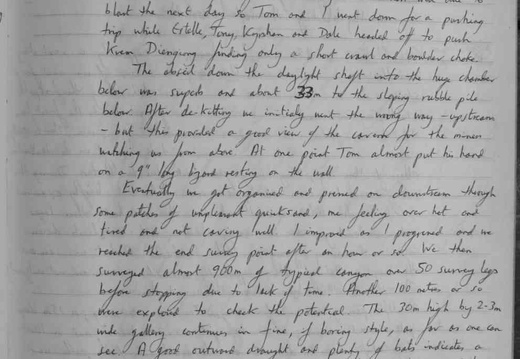 blast the next day so Tom and I went down for a pushing
trip while Estelle, Tony, Kyrshan and Dale headed off to push
Krem Diengiong finding only a short crawl and boulder choke.
The abseil down the daylight shaft into the huge chamber
below was superb and about 33m to the sloping rubble pile
below. After de-kitting we initially went the wrong way - upstream
- but this provided a good view of the cavern for the miners
watching us from above. At one point Tom almost put his hand
on a 9" long lizard resting on the wall.
Eventually we got organised and pressed on downstream through
some patches of unpleasant quicksand, me feeling over hot and
tired and not caving well. I improved as I progressed and we
reached the end survey point after an hour or so. We then
surveyed almost 900m of typical canyon over 50 survey legs
before stopping due to lack of time. Another 100 metres or so
were explored to check the potential. The 30m high by 2-3m
wide gallery continues in fine, if boring style, as far as one can
see. A good outward draught and plenty of bats indicates a